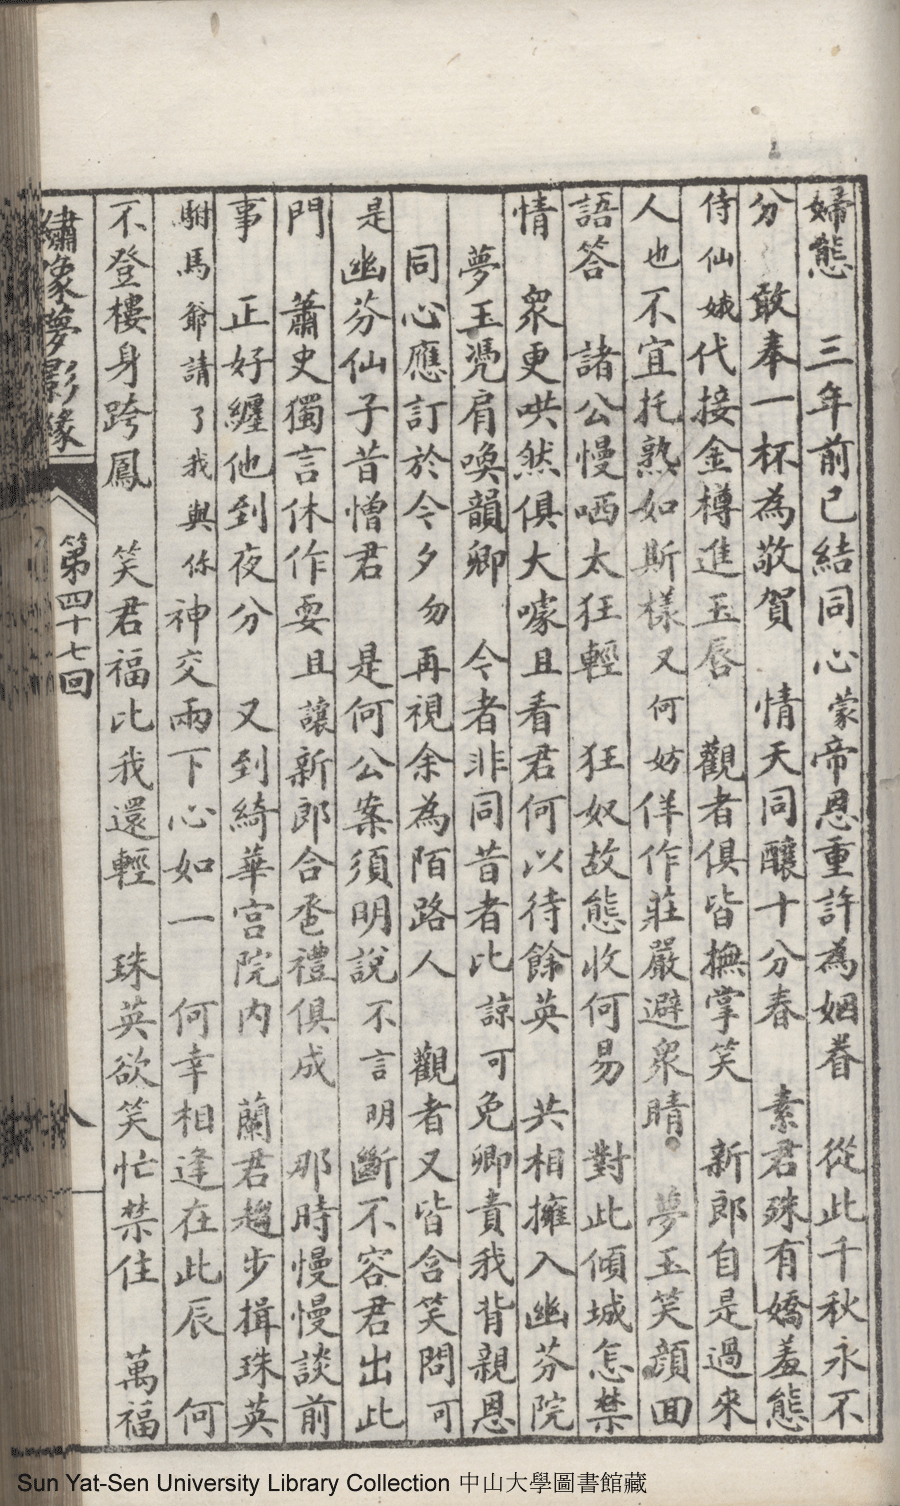 婦態　三年前已結同心蒙帝恩重許為姻眷　從此千秋永不
分　敢奉一杯為敬賀　情天同釀十分春　素君殊有嬌羞態
侍仙娥代接金樽進玉唇　觀者俱皆撫掌笑　新郎自是過來
人也不宜托熟如斯樣又何妨佯作莊嚴避衆睛　夢玉笑顔回
語答　諸公慢哂太狂輕　狂奴故態收何易　對此傾城怎禁
情　衆更哄然俱大噱且看君何以待餘英　共相擁入幽芬院
夢玉凭肩喚韻卿　今者非同昔者比　諒可免卿責我背親恩
同心應訂於今夕勿再視余為陌路人　觀者又皆含笑問可
是幽芬仙子昔憎君　是何公案須明說不言明斷不容君出此
門　蕭史獨言休作耍且讓新郎合卺禮俱成　那時慢慢談前
事　正好纏他到夜分　又到綺華宫院内　蘭君趨步揖珠英
駙馬爺請了我與你神交兩下心如一　何幸相逢在此辰　何
不登樓身跨鳳　笑君福比我還輕　珠英欲笑忙禁住　萬福
繡象夢影緣　第四十七回　八
Sun Yat-Sen University Library Collection 中山大學圖書館藏